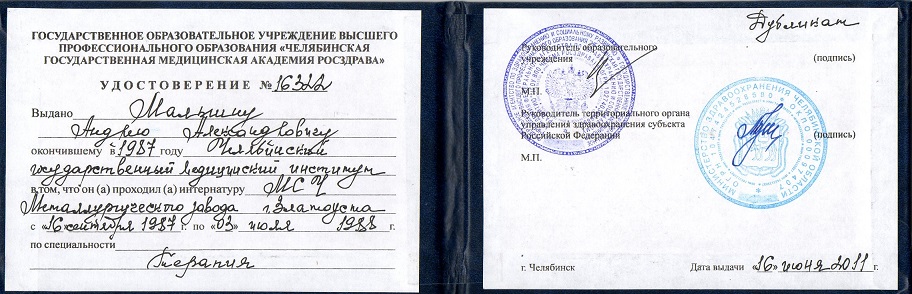 ГОСУДАРСТВЕННОЕ ОБРАЗОВАТЕЛЬНОЕ УЧРЕЖДЕНИЕ ВЫСШЕГО
ПРОФЕССИОНАЛЬНОГО ОБРАЗОВАНИЯ «ЧЕЛЯБИНСКАЯ
ГОСУДАРСТВЕННАЯ МЕДИЦИНСКАЯ АКАДЕМИЯ РОСЗДРАВА»
УДОСТОВЕРЕНИЕ № 16322
Выдано Малышкину
Андрею Александровичу
окончившему в 1987 году Челябинский
государственный медицинский институт
в том, что он (а) проходил (а) интернатуру МСЧ
Металлургического завода г. Златоуста
с «16» сентября 1987 г. по «03» июля 1988 г.
по специальности
Терапия
Дубликат
Руководитель образовательного
учреждения (подпись)
М.П.
Руководитель территориального органа
управления здравоохранения субъекта (подпись)
Российской Федерации
М.П.
г. Челябинск Дата выдачи «16» июня 2011 г.